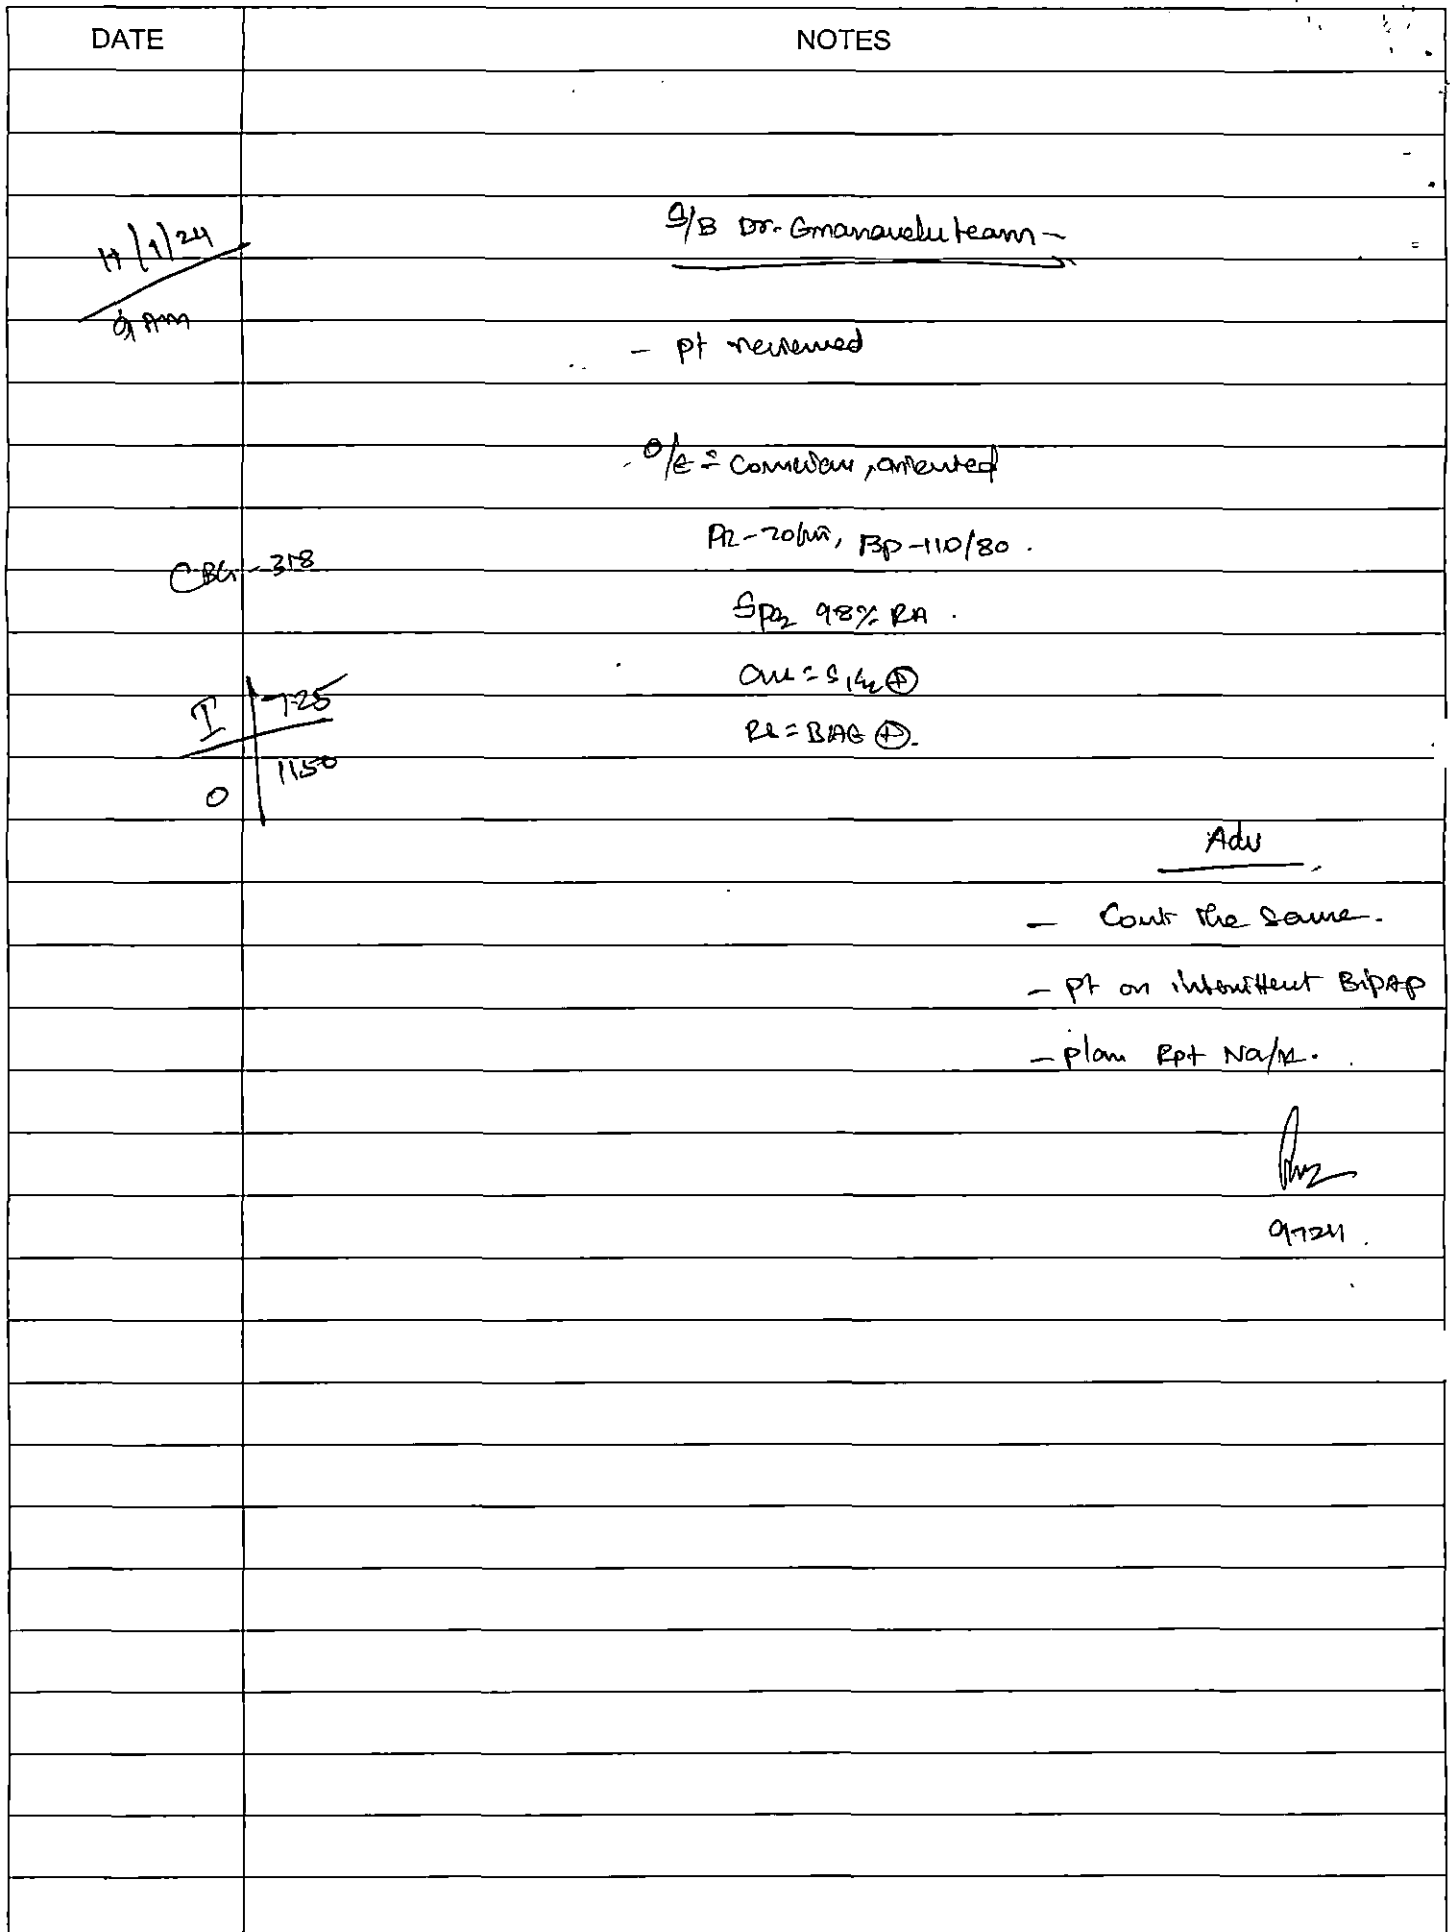 DATE
NOTES
S/B Dr. Gnanavelu team -
9 AM
- pt reviewed
- O/E = Conscious, oriented
PR-70/min, BP-110/80.
CBG - 318
SpO2 98% RA.
CVS = S1S2 ⊕
I 725
RS = BAE ⊕.
O 1150
Adv
- Cont the same.
- pt on intermittent BipAP
- plan Rpt Na/K.
9724.